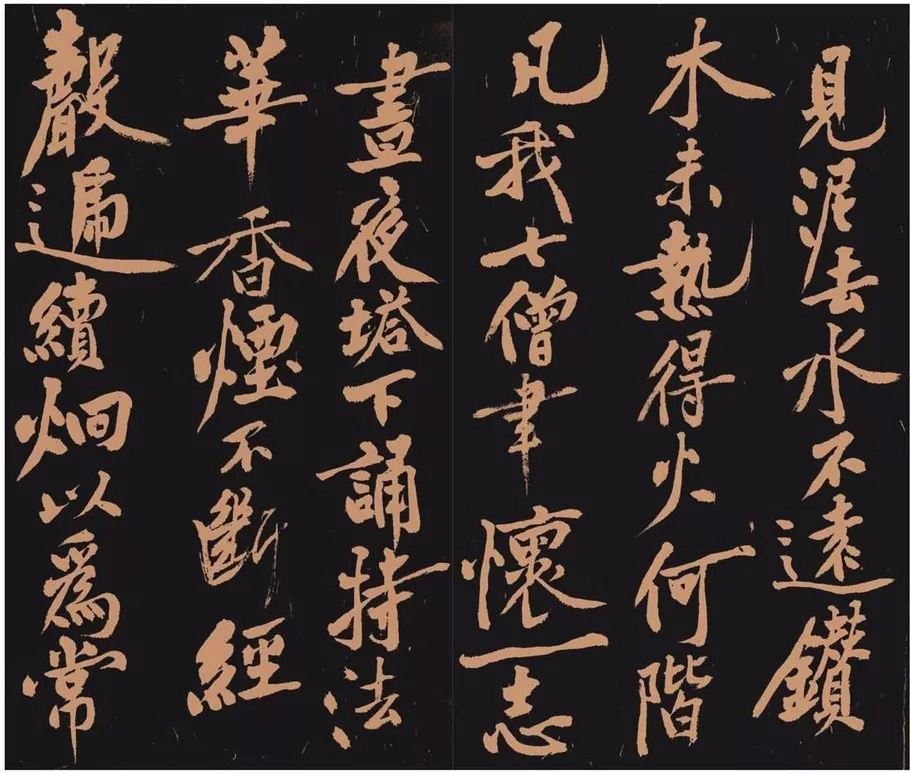 見泥去水不遠鑽
木未熱得火何階
凡我七僧聿懷一志
晝夜塔下誦持法
華香煙不斷經
聲遞續炯以爲常